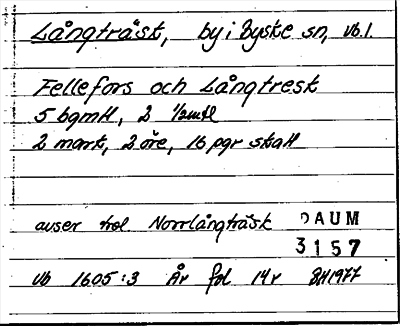 Långträsk, by i Byske sn, Vb.l.
Fellefors och Långtresk
5 bgmtl, 2 1/2mtl
2 mark, 2 öre, 16 pgr skatt
avser trol. Norrlångträsk DAUM
3157
Vb 1605:3 År fol 14r BH1977